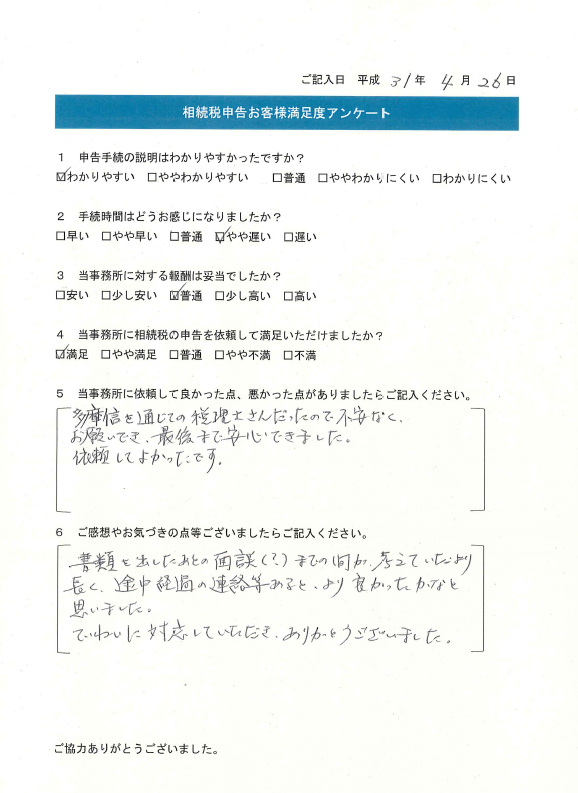 ご記入日 平成 31年 4月 26日
相続税申告お客様満足度アンケート
1 申告手続の説明はわかりやすかったですか?
☑わかりやすい □ややわかりやすい □普通 □ややわかりにくい □わかりにくい
2 手続時間はどうお感じになりましたか?
□早い □やや早い □普通 ☑やや遅い □遅い
3 当事務所に対する報酬は妥当でしたか?
□安い □少し安い ☑普通 □少し高い □高い
4 当事務所に相続税の申告を依頼して満足いただけましたか?
☑満足 □やや満足 □普通 □やや不満 □不満
5 当事務所に依頼して良かった点、悪かった点がありましたらご記入ください。
多摩信を通じての税理士さんだったので不安なく、
お願いでき、最後まで安心できました。
依頼してよかったです。
6 ご感想やお気づきの点等ございましたらご記入ください。
書類を出したあとの面談(?)までの間が、考えていたより
長く、途中経過の連絡等あると、より良かったかなと
思いました。
ていねいに対応していただき、ありがとうございました。
ご協力ありがとうございました。